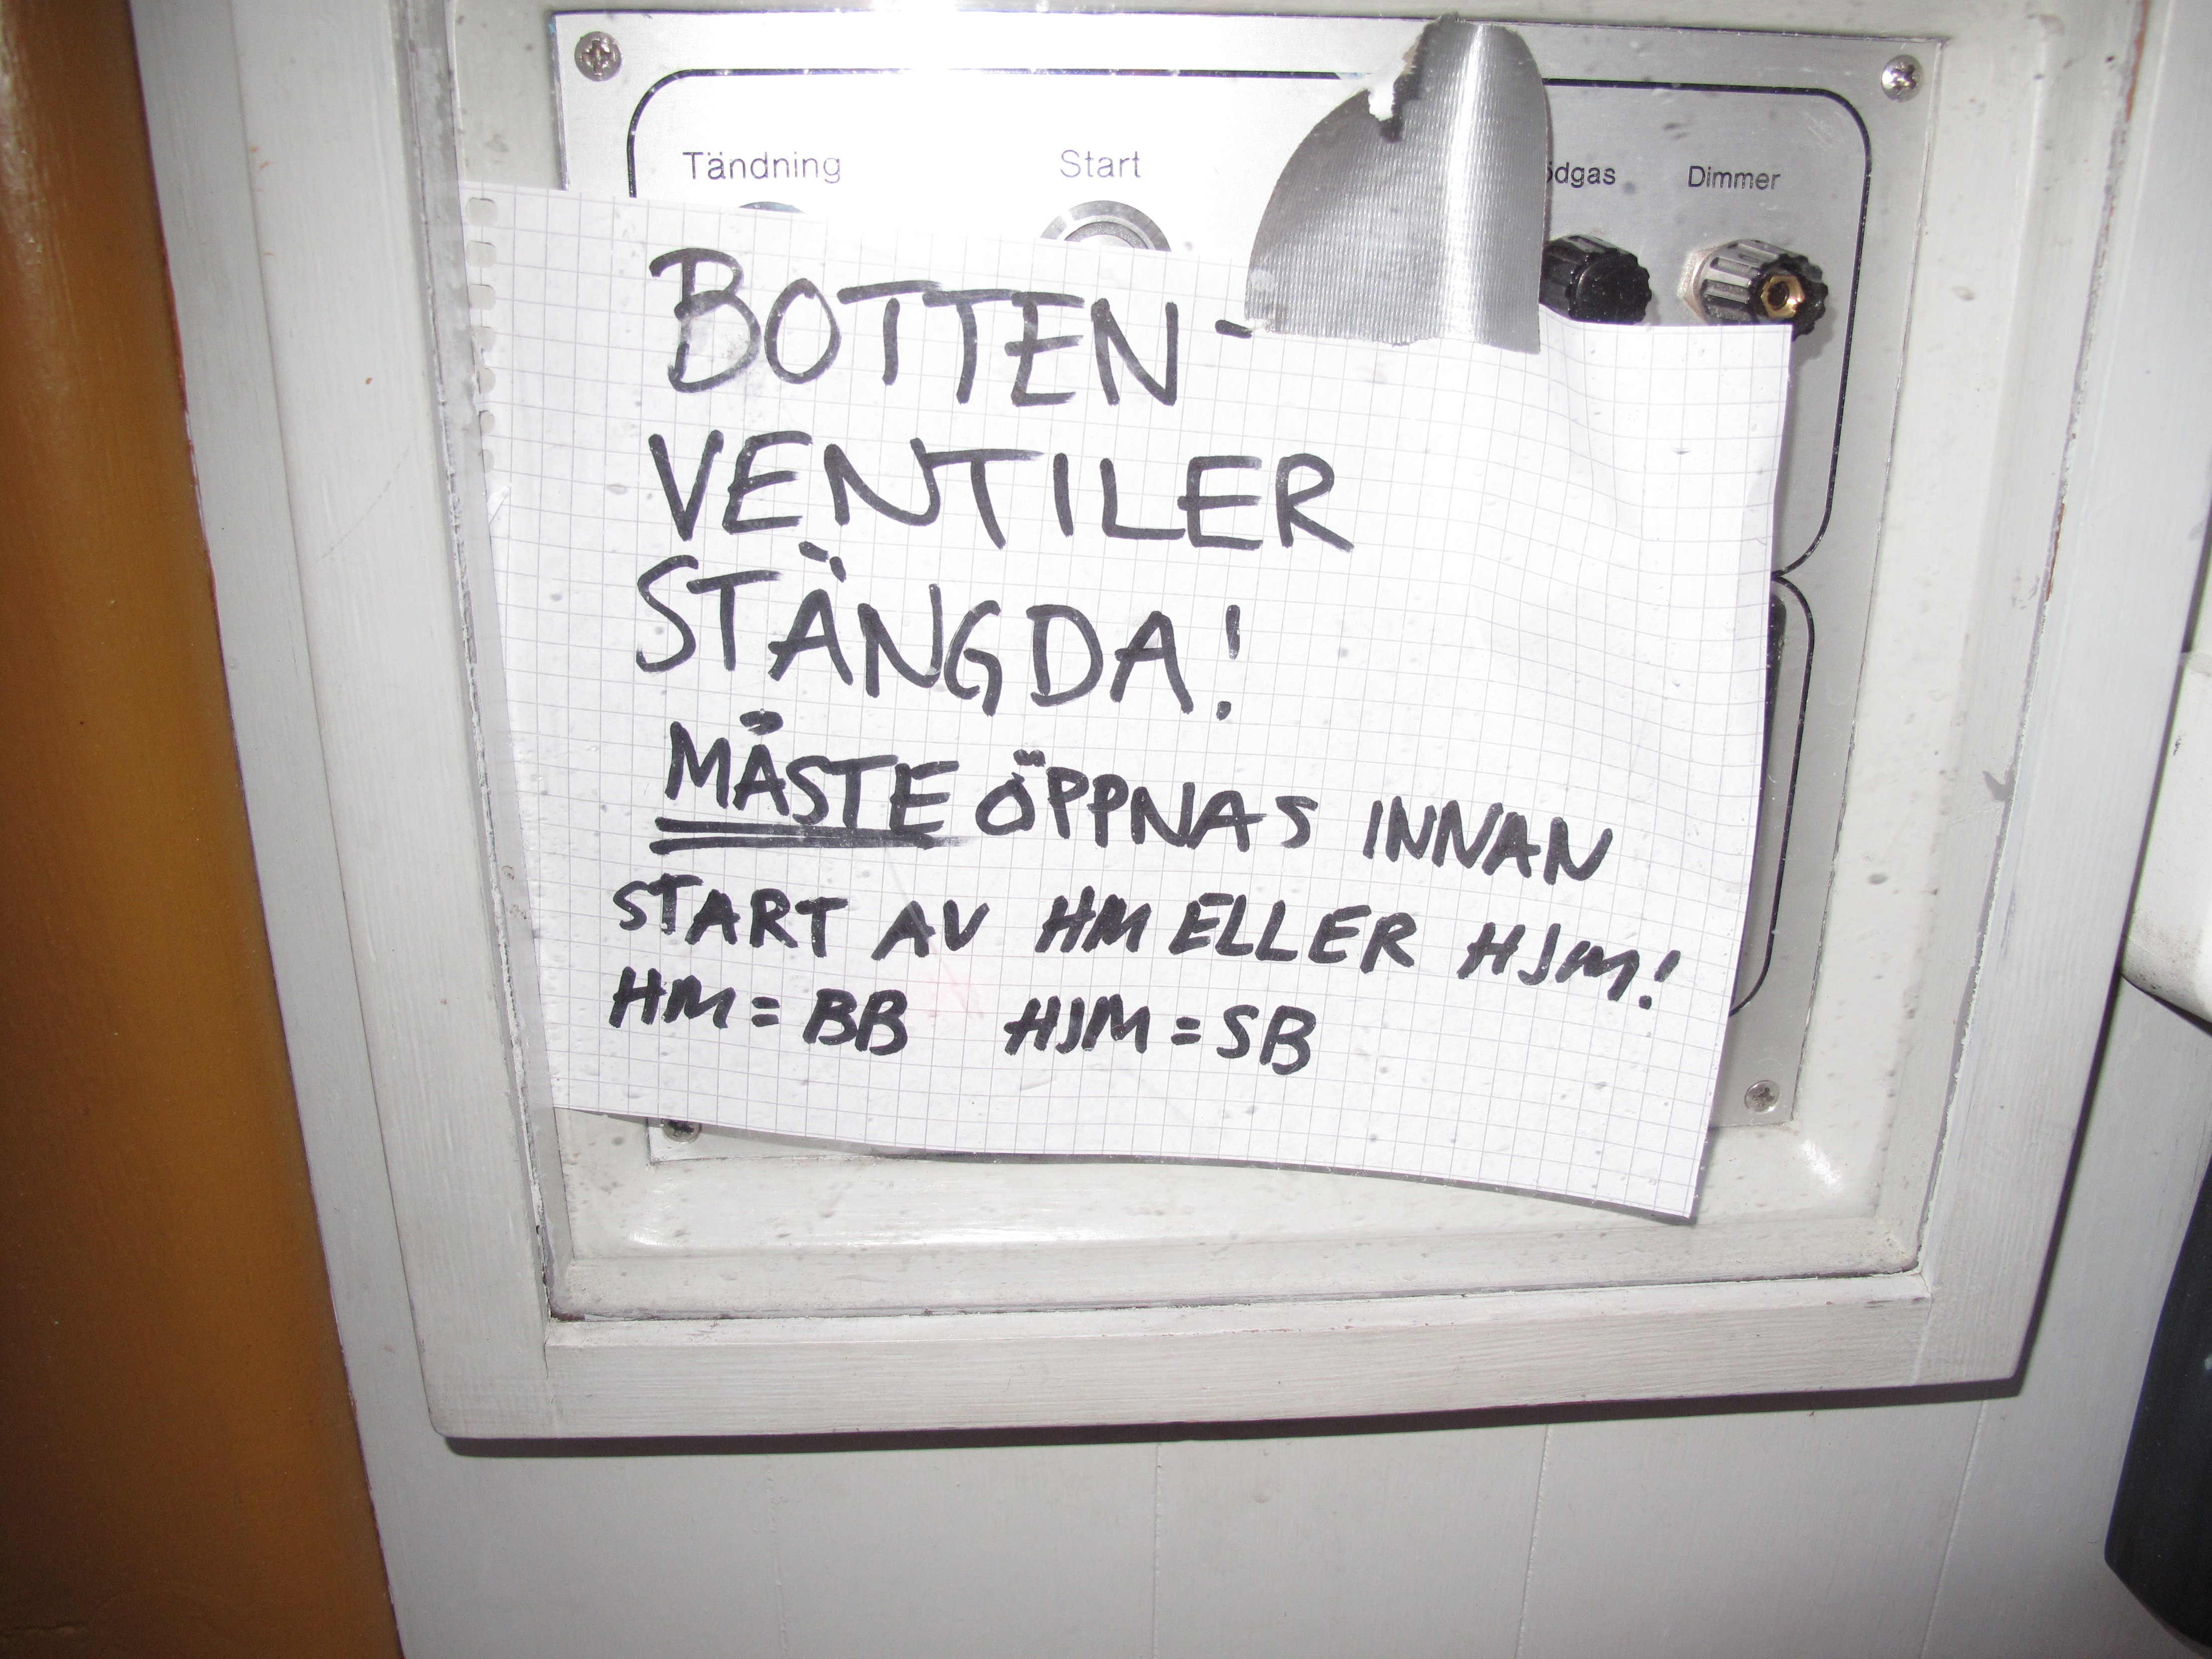 Tändning Start ödgas Dimmer
BOTTEN-
VENTILER
STÄNGDA!
MÅSTE ÖPPNAS INNAN
START AV HM ELLER HJM!
HM = BB HJM = SB